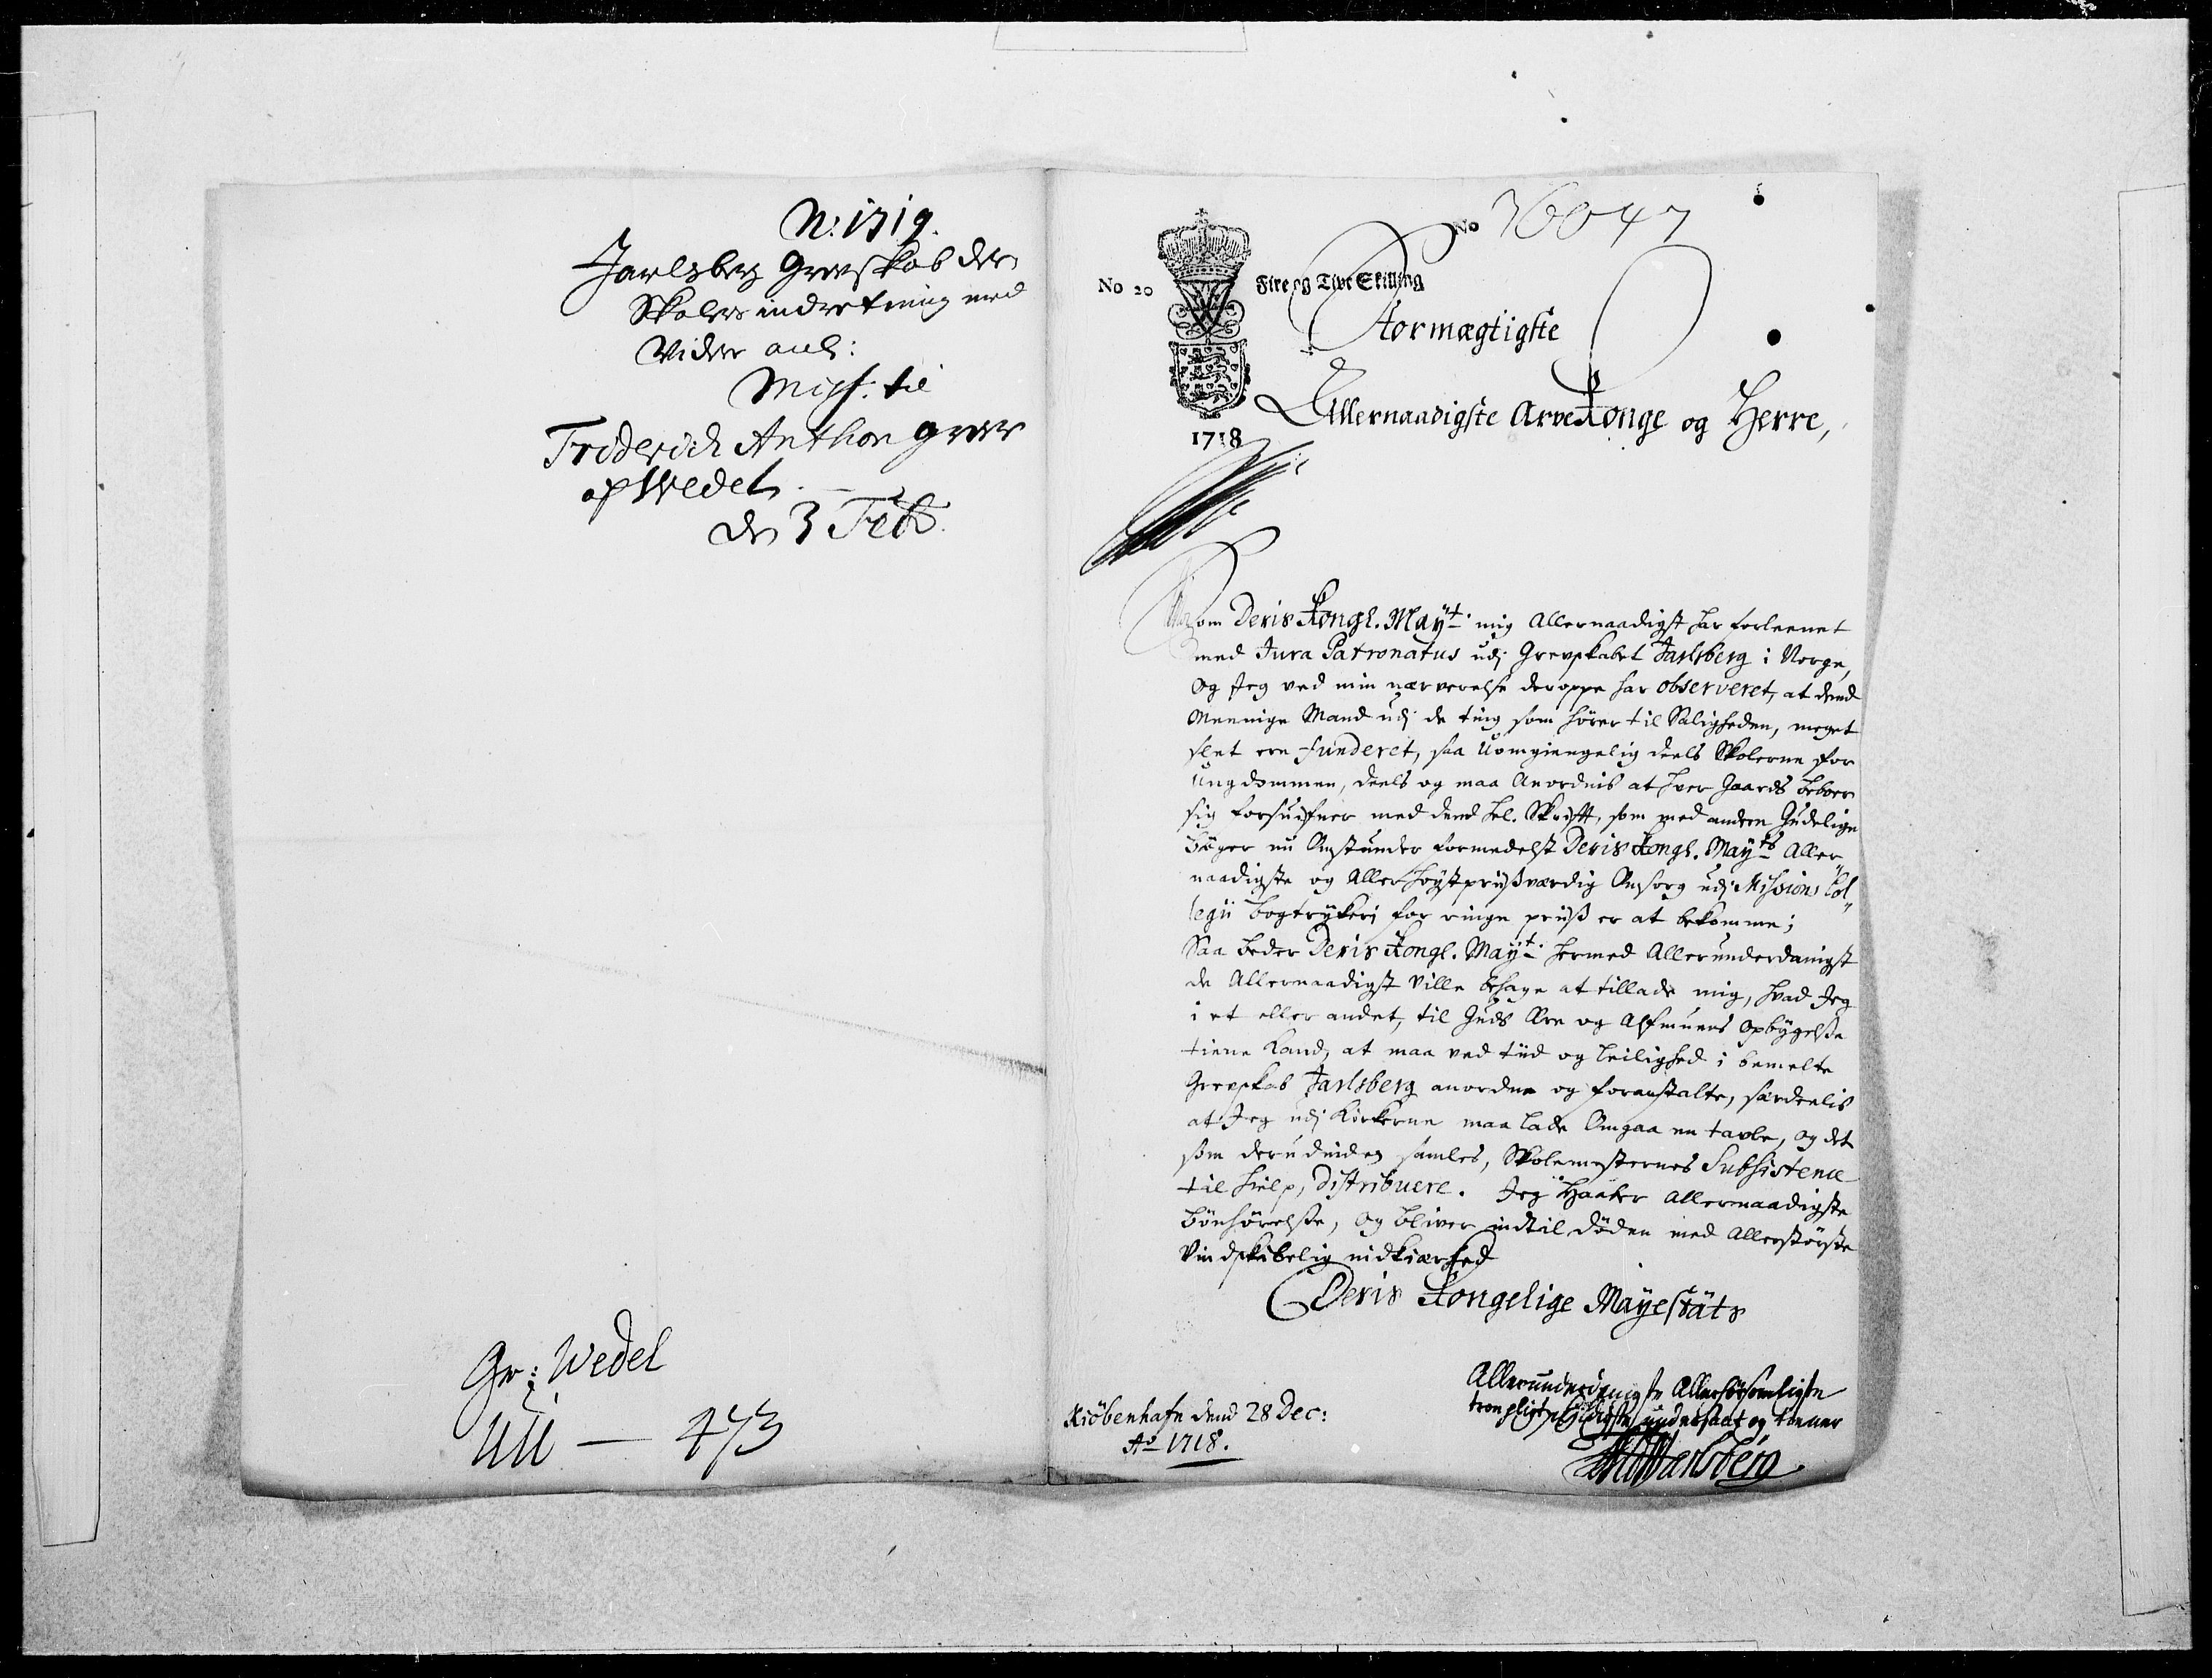 N: 1719.
Jarlsberg Grevskab der
Skolers indretning med
Videre anl:
Miss. til
Friderich Anthon greve
af Wedel.
den 3 Feb.
Gr: Wedel
473
No 36047
No 20
Fire og Tive Skilling
1718
Stormægtigste
Allernaadigste ArveKonge og Herre,
Som Deris Kongl. Mayt: mig Allernaadigst har forleenet
med Jura Patronatus udj Grevskabet Jarlsberg i Norge,
Og Jeg ved min nærverelse deroppe har observeret, at dend
Meenige Mand udj de ting som hører til Saligheden, meget
slet ere funderet, saa Uomgiengelig deels Skolerne for
Ungdommen, deels og maa Anordnis at hver Gaards beboer
sig forsuifner med dend hel. Skrifft, som med andre Gudelige
Bøger nu Omstunder formedelst Deris Kongl. Mayts Aller„
naadigste og Allerhøystprijsværdig Omsorg udj Missions Col„
legii bogtrykeri for ringe prijs er at bekomme;
Saa beder Deris Kongl. Mayt: hermed Allerunderdanigst
de Allernaadigst Ville behage at tillade mig, hvad Jeg
i et eller andet, til Guds Ære og Allmuens Opbygelse
tiene kand, at maa ved tiid og leilighed i bemelte
Grevskab Jarlsberg anordne og foranstalte, særdeelis
at Jeg udj Kirkerne maa lade Omgaa en tavle, og det
som derudinden samles, Skolemesternes Subsistence
til hielp, distribuere. Jeg Haaber Allernaadigste
bønhørelse, og bliver indtil døden med Allerstørste
Vindskibelig nidkiærhed
Deris Kongelige Mayestäts
Allerunderdanigste Allerhørsomligste
troe pligtskyldigste undersaat og tienner
Kiöbenhafn dend 28 Dec:
Ao 1718.